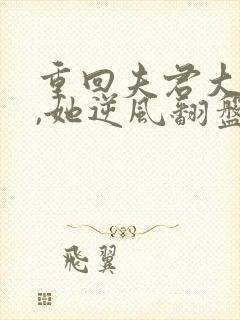 重回夫君大
,她逆风翻盘
飛翼